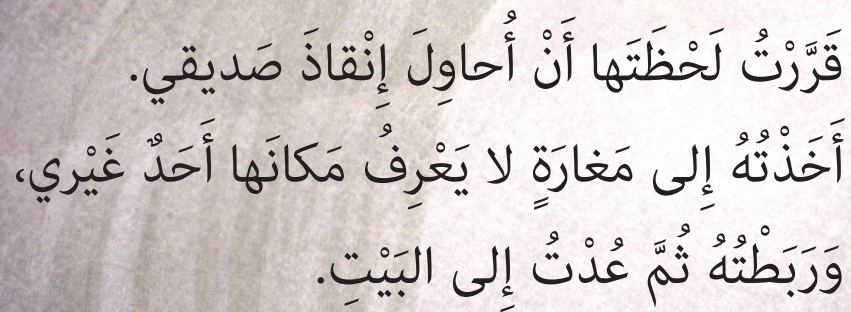 قَرَّرْتُ لَحْظَتَها أَنْ أُحاوِلَ إِنْقاذَ صَديقي.
أَخَذْتُهُ إِلى مَغارَةٍ لا يَعْرِفُ مَكانَها أَحَدٌ غَيْري،
وَرَبَطْتُهُ ثُمَّ عُدْتُ إِلى البَيْتِ.